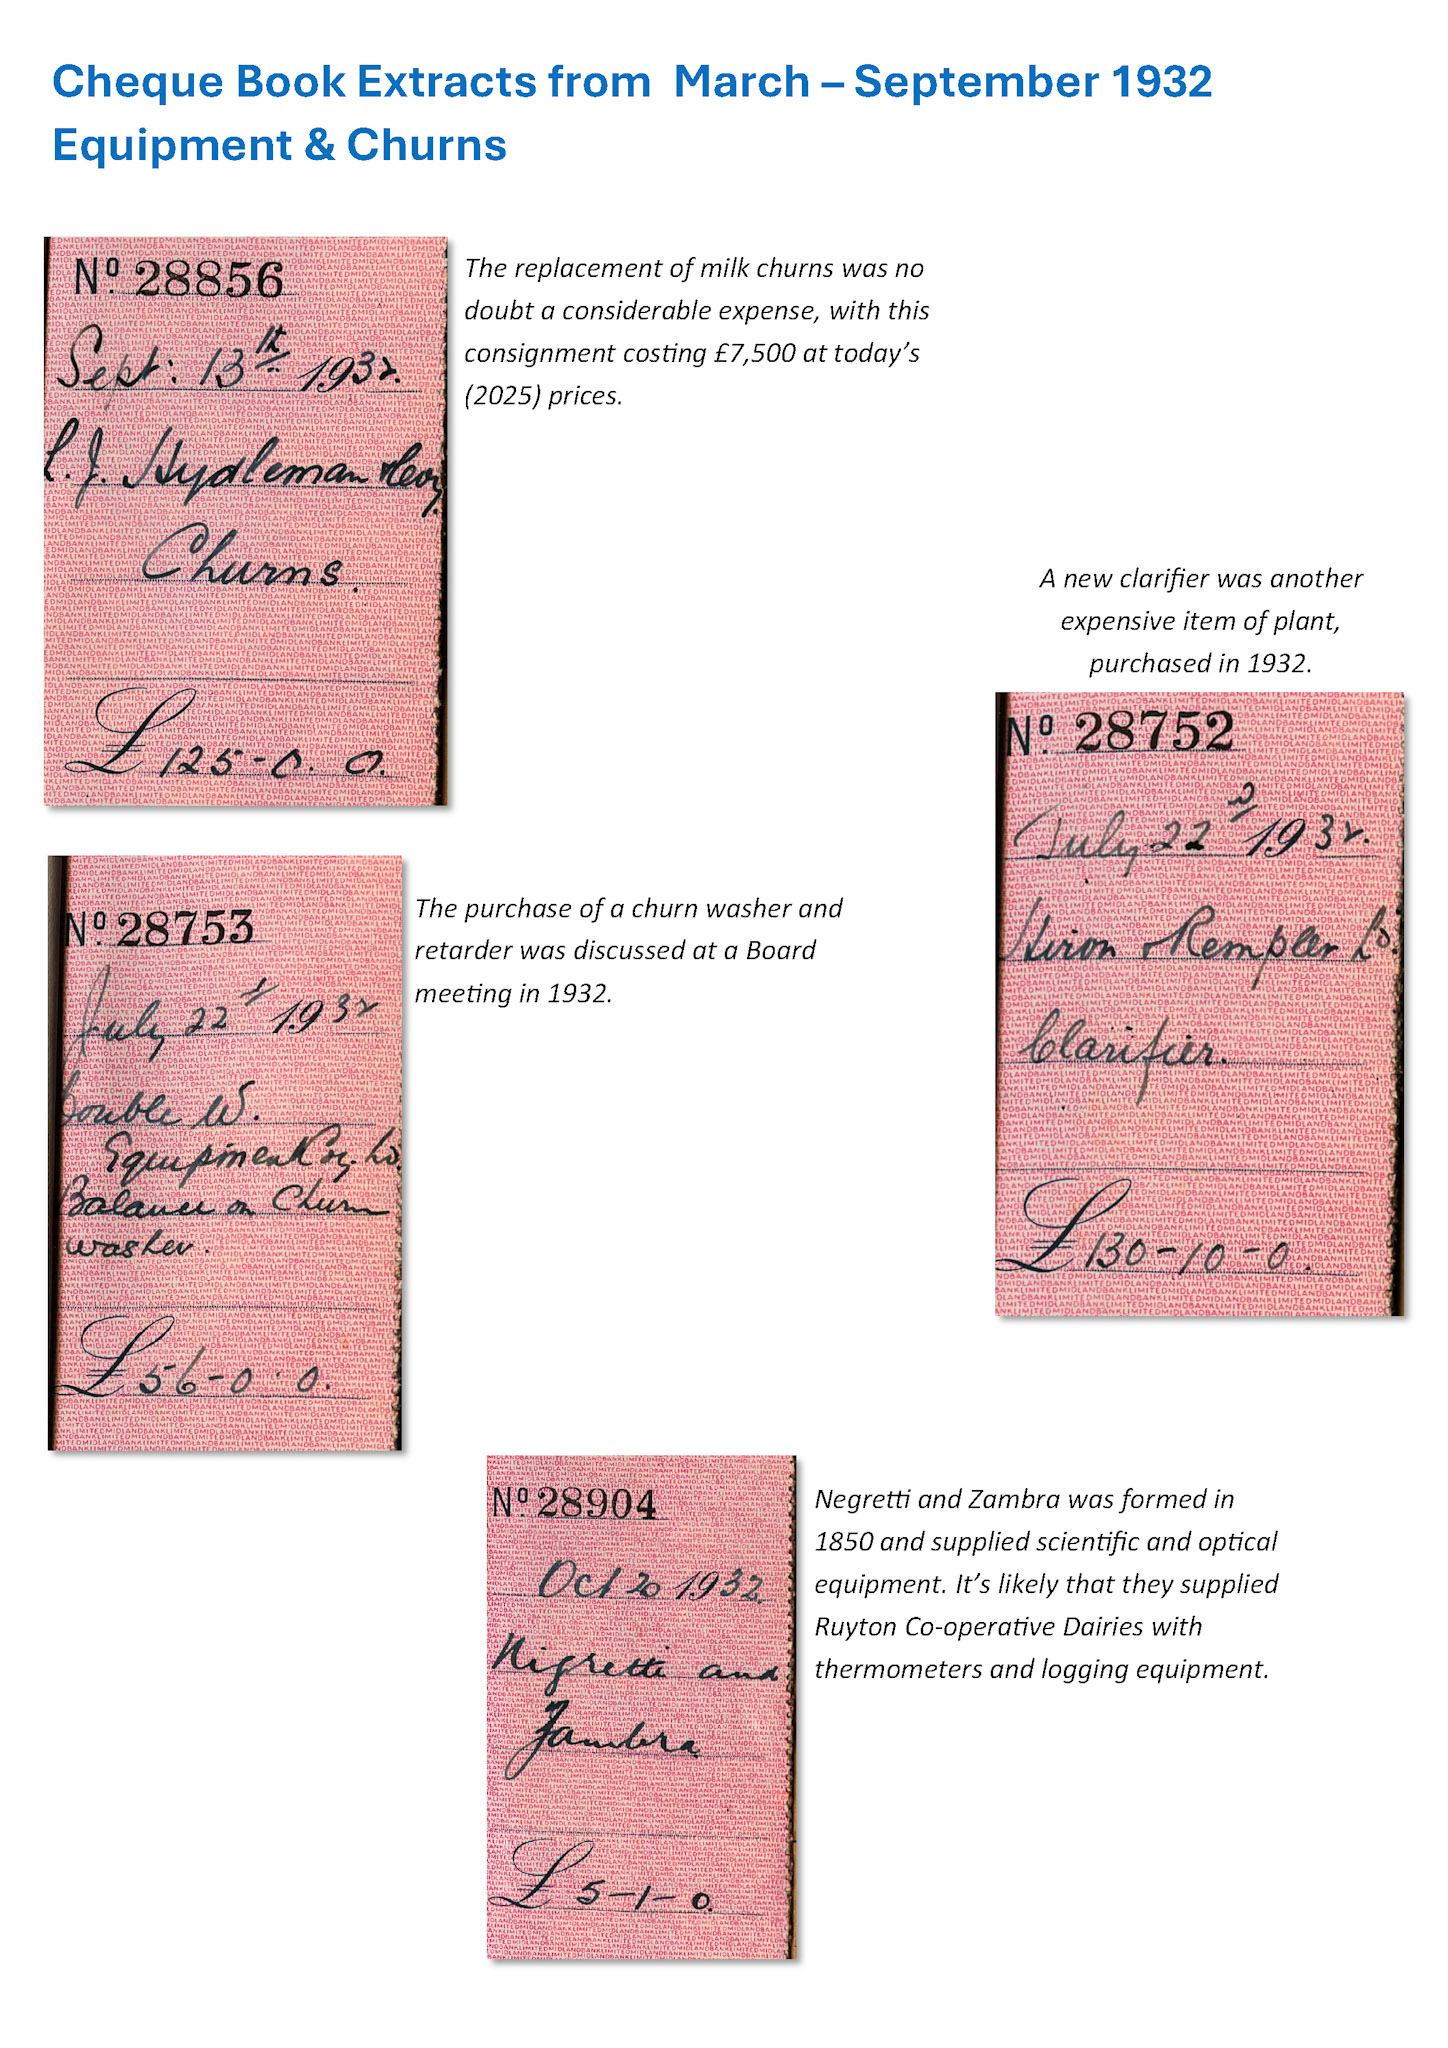 Cheque Book Extracts from March – September 1932
Equipment & Churns
Nº 28856
Sept: 13th 1932.
Hydleman
Churns.
£125-0. 0.
The replacement of milk churns was no
doubt a considerable expense, with this
consignment costing £7,500 at today's
(2025) prices.
A new clarifier was another
expensive item of plant,
purchased in 1932.
Nº 28752
July 22 1932.
Clarifier.
£130-10-0.
Nº 28753
July 22 1932
Double W.
Equipment Coy. Ld.
Balance on Churn
washer.
£56-0-0.
The purchase of a churn washer and
retarder was discussed at a Board
meeting in 1932.
Nº 28904
Oct 20 1932
Nigretti and
Zambra
£5-1-0.
Negretti and Zambra was formed in
1850 and supplied scientific and optical
equipment. It's likely that they supplied
Ruyton Co-operative Dairies with
thermometers and logging equipment.